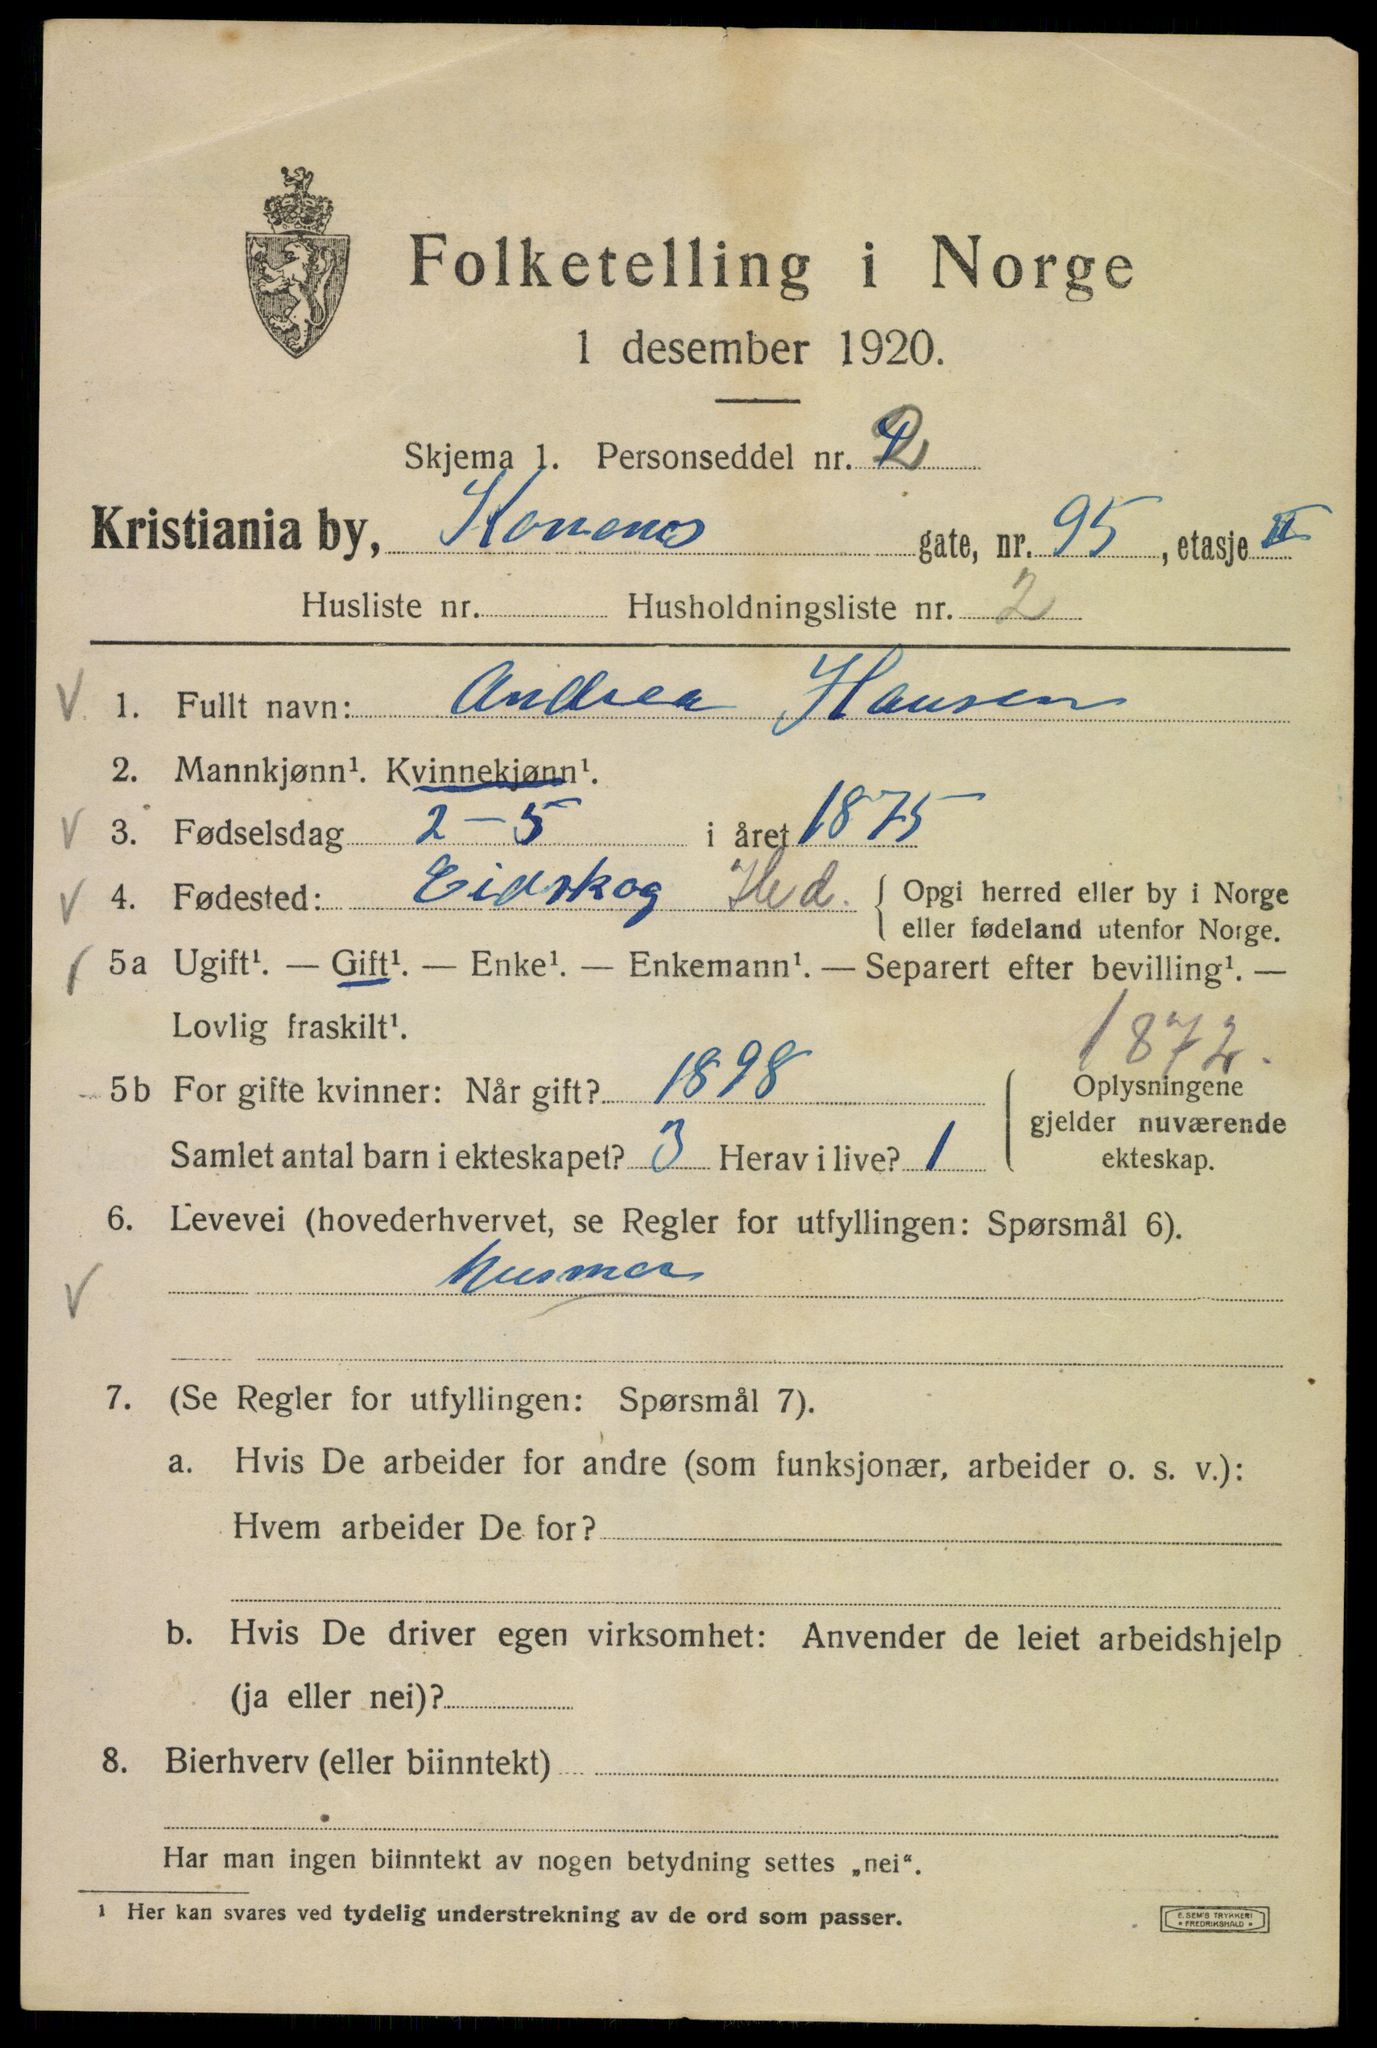 Folketelling i Norge
1 desember 1920.
Skjema 1. Personseddel nr. 2
Kristiania by, gate, nr. 95, etasje II
Husliste nr. Husholdningsliste nr. 2
1. Fullt navn: Andrea Hansen
2. Mannkjønn¹. Kvinnekjønn¹.
3. Fødselsdag 2-5 i året 1875
4. Fødested: Eidskog Hed. { Opgi herred eller by i Norge
eller fødeland utenfor Norge.
5a Ugift¹. — Gift¹. — Enke¹. — Enkemann¹. — Separert efter bevilling¹. —
Lovlig fraskilt¹.
1872.
5b For gifte kvinner: Når gift? 1898
Samlet antal barn i ekteskapet? 3 Herav i live? 1
Oplysningene
gjelder nuværende
ekteskap.
6. Levevei (hovederhvervet, se Regler for utfyllingen: Spørsmål 6).
Husmor
7. (Se Regler for utfyllingen: Spørsmål 7).
a. Hvis De arbeider for andre (som funksjonær, arbeider o. s. v.):
Hvem arbeider De for?
b. Hvis De driver egen virksomhet: Anvender de leiet arbeidshjelp
(ja eller nei)?
8. Bierhverv (eller biinntekt)
Har man ingen biinntekt av nogen betydning settes „nei“.
¹ Her kan svares ved tydelig understrekning av de ord som passer.
E. SEM'S TRYKKERI
* FREDRIKSHALD *